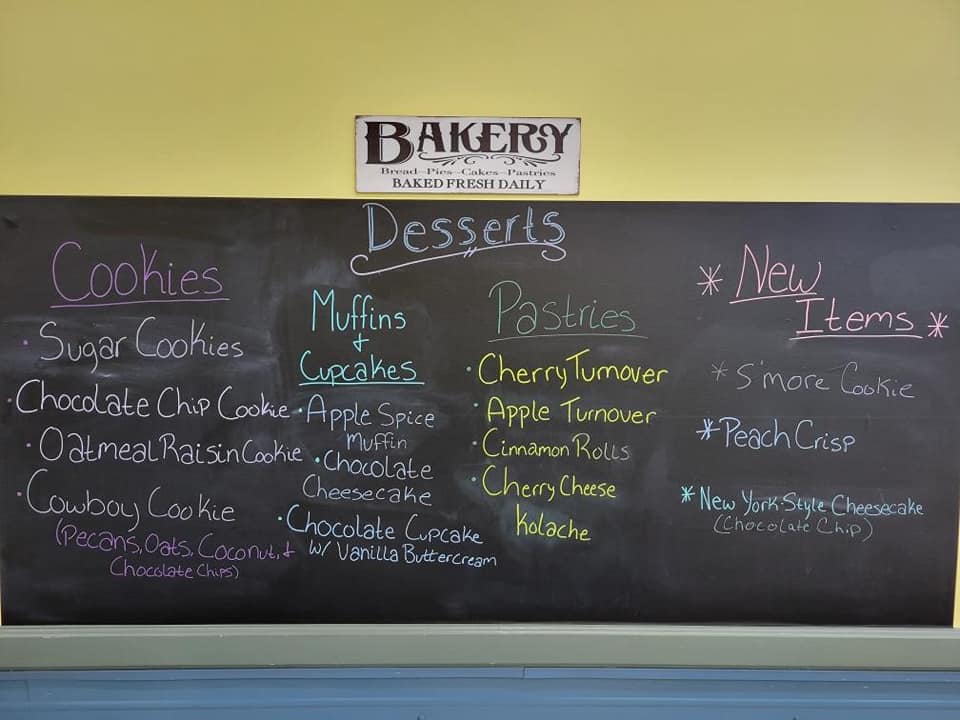 BAKERY
Bread-Pies-Cakes-Pastries
BAKED FRESH DAILY
Desserts
Cookies
· Sugar Cookies
· Chocolate Chip Cookie
· Oatmeal Raisin Cookie
· Cowboy Cookie
(Pecans, Oats, Coconut, &
Chocolate Chips)
Muffins
&
Cupcakes
· Apple Spice
Muffin
· Chocolate
Cheesecake
· Chocolate Cupcake
w/ Vanilla Buttercream
Pastries
· Cherry Turnover
· Apple Turnover
· Cinnamon Rolls
· Cherry Cheese
Kolache
* New
Items *
* S'more Cookie
* Peach Crisp
* New York-Style Cheesecake
(Chocolate Chip)